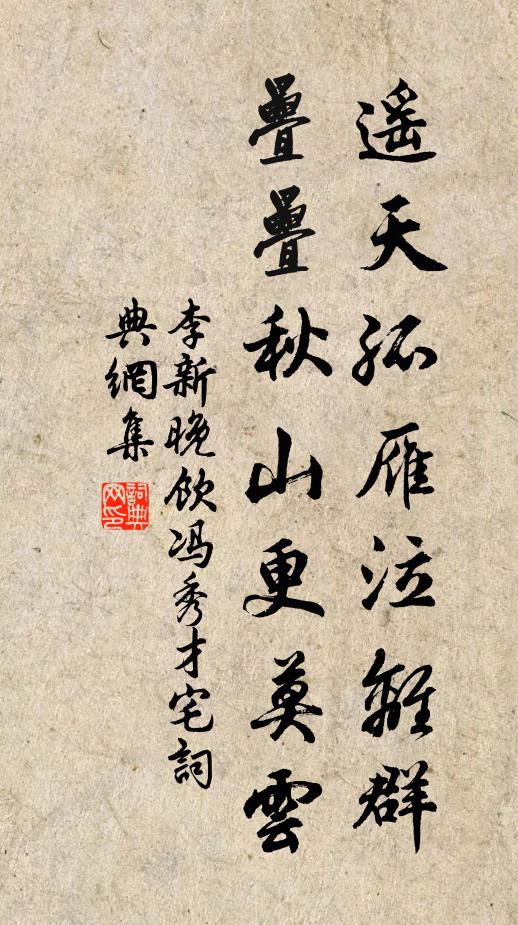 遥天孤雁泣離群
疊疊秋山更莫雲
李新晚飲冯秀才宅詞
典網集
詞典
网印